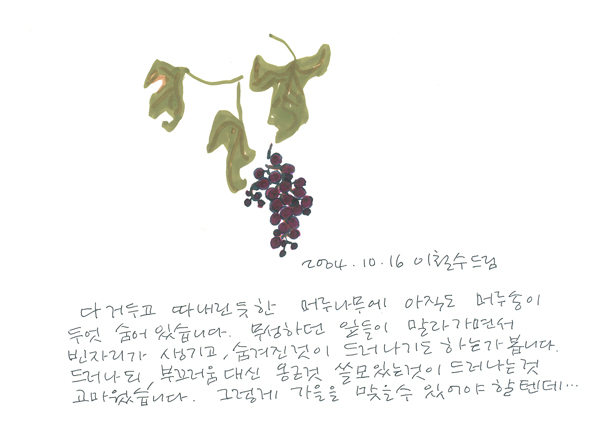 2004.10.16 이철수드림
다 거두고 따내린듯한 머루나무에 아직도 머루송이
두엇 숨어 있습니다. 무성하던 잎들이 말라가면서
빈자리가 생기고, 숨겨진것이 드러나기도 하는가 봅니다.
드러나되, 부끄러움 대신 옹근것 쓸모있는것이 드러나는것
고마웠습니다. 그렇게 가을을 맞을수 있어야 할텐데…